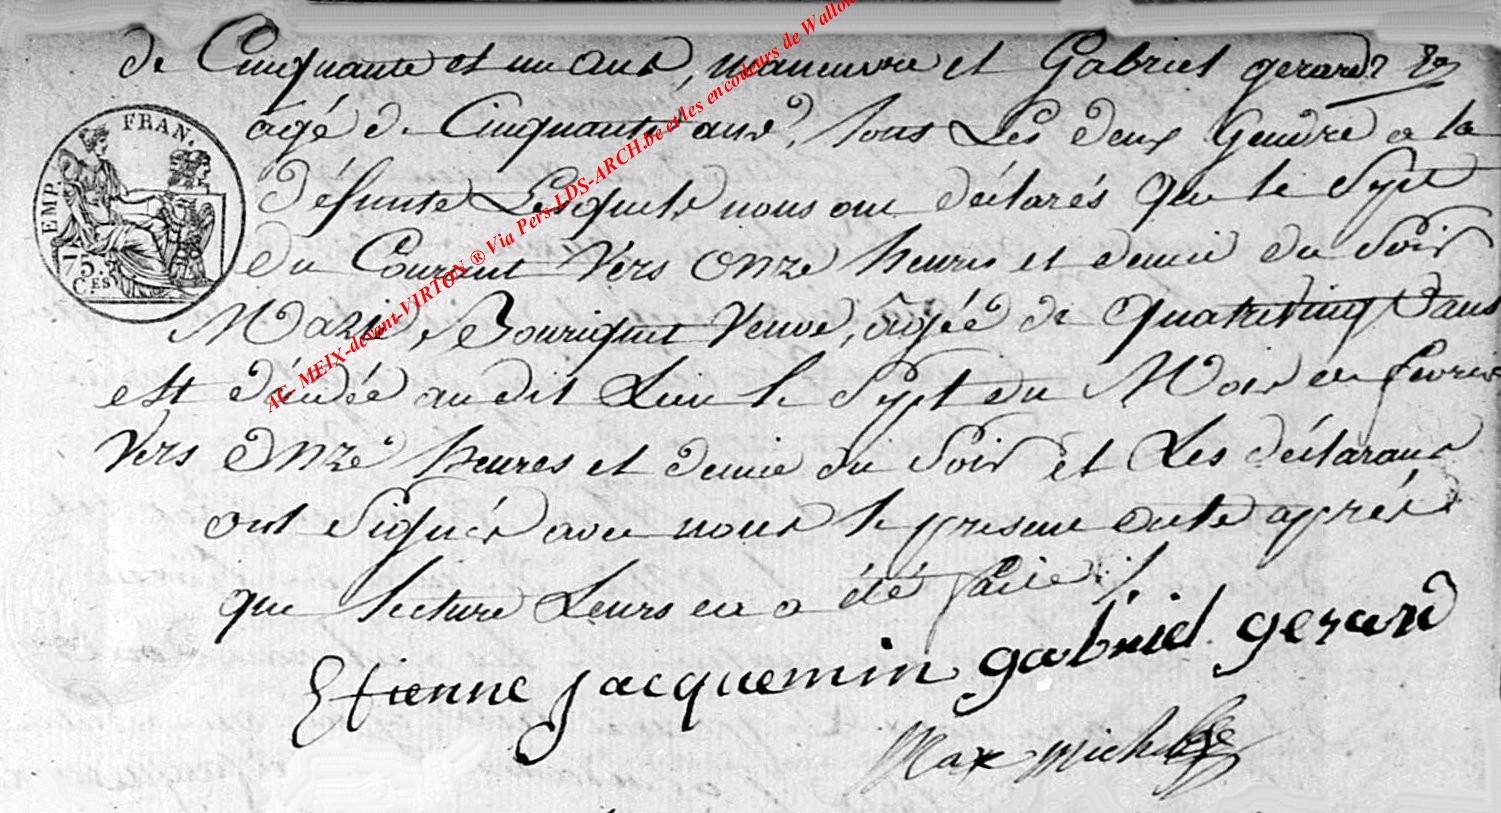 de Cinquante et un ans, maneuvre et Gabriel gerard
agé de Cinquante ans, tous Les deux Gendre a la
défunte Lesquels nous ont déclarés que le Sept
du Courant Vers onze heures et demie du Soir
Marie Bouriquet Veuve, agée de quatrevingt ans
est décédée au dit Lieu le Sept du Mois de fevrier
Vers onze heures et demie du Soir et Les déclarans
ont Signés avec nous le present acte après
que lecture Leurs en a été faite
Etienne Jacquemin gabriel gerard
Max Michel
EMP. FRAN.
75.
C.ES
AC- MEIX-devant-VIRTON ® Via Pers-LDS-ARCH.be et les encodeurs de Wallon